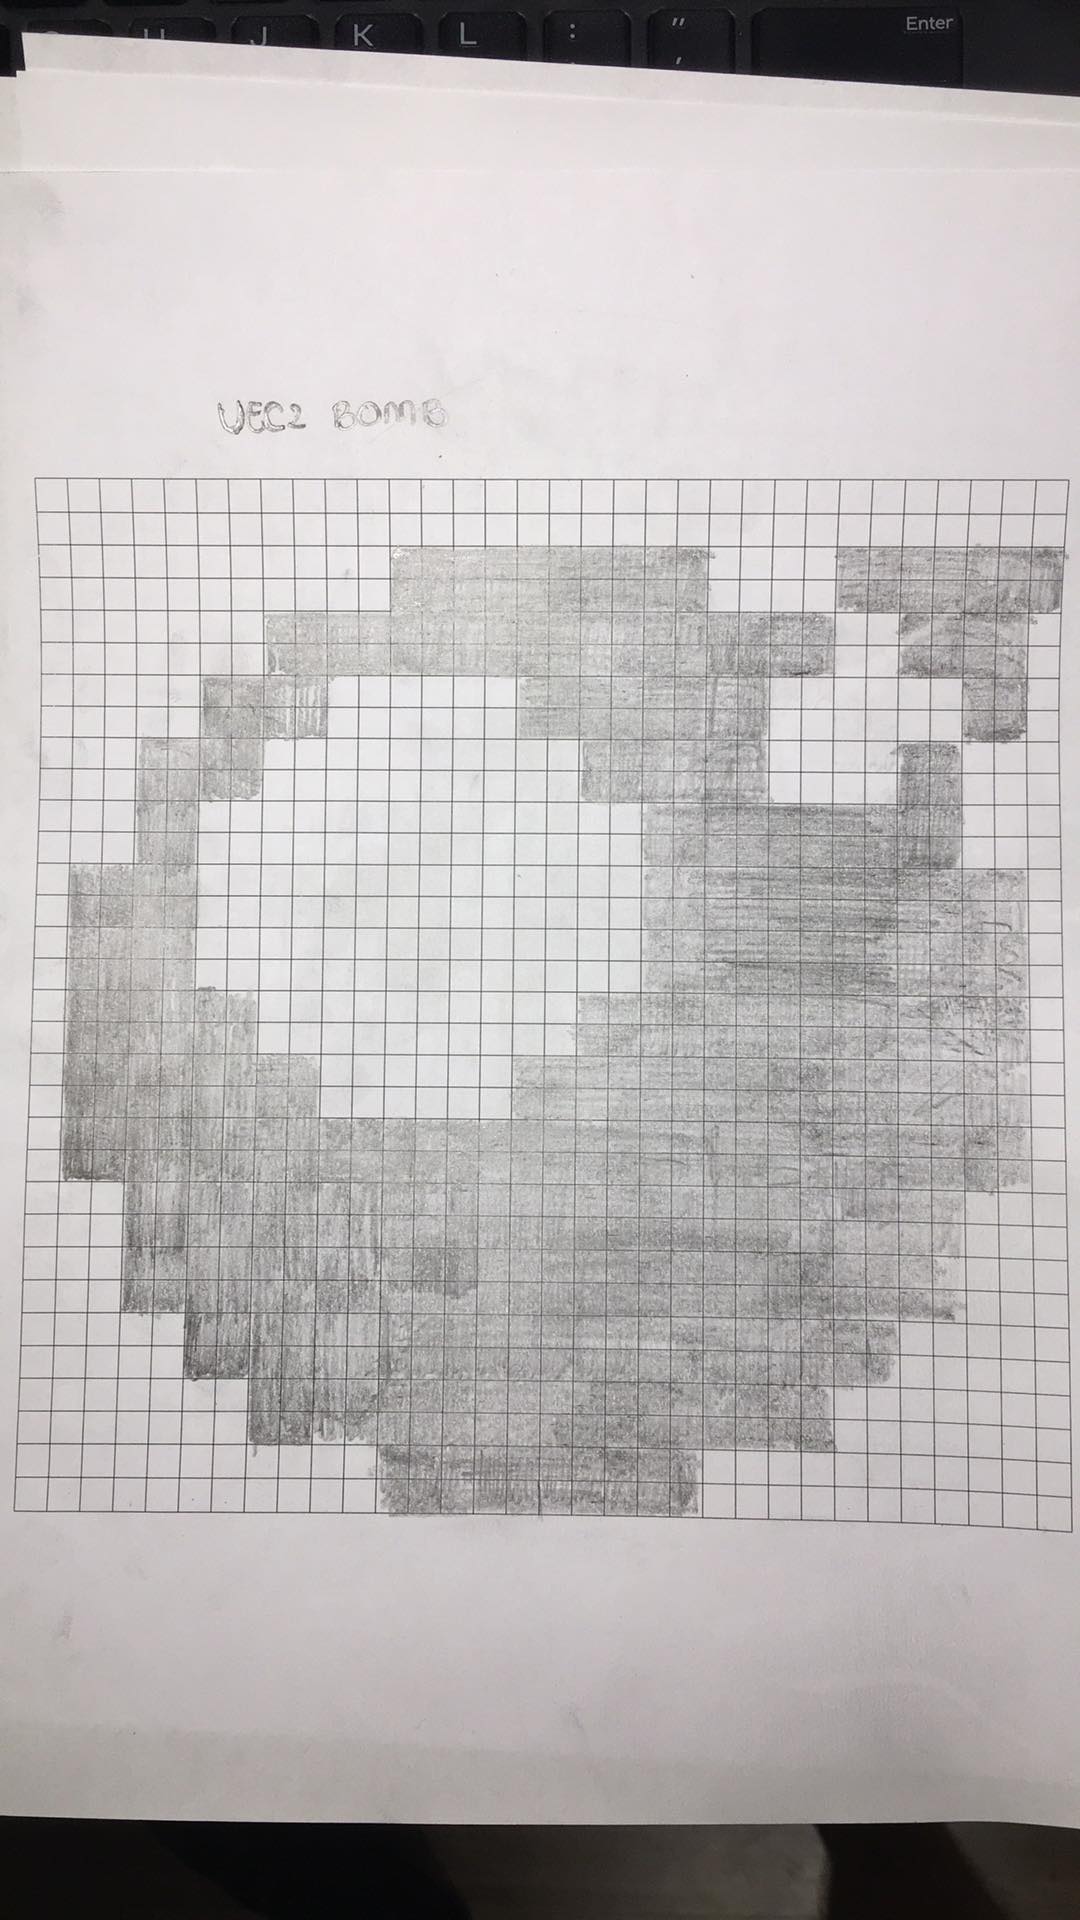 J K L : "
Enter
UEC2 BOMB